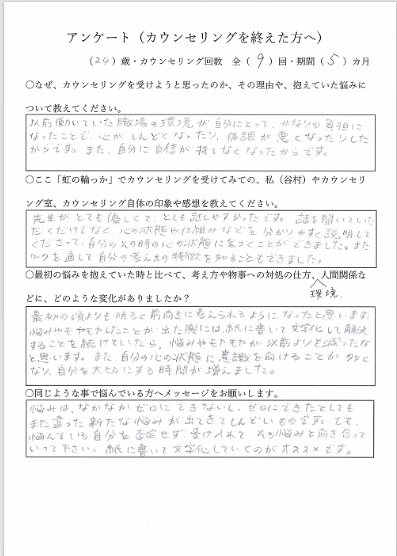 アンケート（カウンセリングを終えた方へ）
（24）歳・カウンセリング回数　全（9）回・期間（5）カ月
○なぜ、カウンセリングを受けようと思ったのか、その理由や、抱えていた悩みに
ついて教えてください。
以前働いていた職場の環境が自分にとって、かなりの負担に
なったことで、心が しんどくなったり、体調が 悪くなったりした
からです。また、自分に自信が 持てなくなったからです。
○ここ「虹の輪っか」でカウンセリングを受けてみての、私（谷村）やカウンセリ
ング室、カウンセリング自体の印象や感想を教えてください。
先生が とても優しくて、とても話しやすかったです。話を聞いていた
だくだけでなく、心の状態や仕組みなどを 分かりやすく説明して
くださって、自分のその時の心の状態に気づくことができました。また
ワークを通して自分の考え方の特徴を知ることもできました。
○最初の悩みを抱えていた時と比べて、考え方や物事への対処の仕方、人間関係な
環境.
どに、どのような変化がありましたか？
最初の頃よりも 明るく前向きに考えられるようになったと思います。
悩みやモヤモヤしたことが 出た際には、紙に書いて文字化して解決
することを続けていたら、悩みやモヤモヤが以前よりも減ったな
と思います。また、自分の心の状態に意識を向けることが 多く
なり、自分を大切にする時間が増えました。
○同じような事で悩んでいる方へメッセージをお願いします。
悩みは、なかなか ゼロに できないし、ゼロにできたとしても
また違った新たな悩みが出てきてしんどいものです。でも、
悩んでいる自分を否定せず、受け入れて その悩みと向き合って
いって下さい。紙に書いて文字化していくのがオススメです。